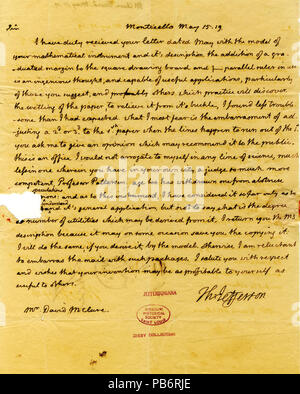 Sir
Monticello May 15. 19
I have duly recieved your letter dated May with the model of
your mathematical instrument and it's description. the addition of a gra-
duated margin to the square drawing board and parallel ruler in use
is an ingenious thought, and capable of useful applications, particularly
of those you suggest, and probably others which practice will discover.
the wetting of the paper to relieve it from it's buckle, I found less trouble-
some than I had expected. what I most fear is the embarrasment of ad-
justing a 2d or 3d to the 1st paper when the lines happen to run out of the
you ask me to give an opinion which may recommend it to the public.
this is an office I would not arrogate to myself in any line of science, much
less in one wherein you have in your own city a judge so much more
competent, Professor Patterson
general application, but not to say what is the degree
or number of utilities which may be derived from it. I return you the MS.
description because it may on some occasion save you the copying it.
I will do the same, if you desire it, by the model. otherwise I am reluctant
to embarras the mail with such packages. I salute you with respect
and wishes that your invention may be as profitable to yourself as
useful to others.
Th: Jefferson
JEFFERSONIANA
MISSOURI
HISTORICAL
SOCIETY
SAINT LOUIS
BIXBY COLLECTION
Mr. David McClure.
alamy
alamy stock photo
PB6RJE